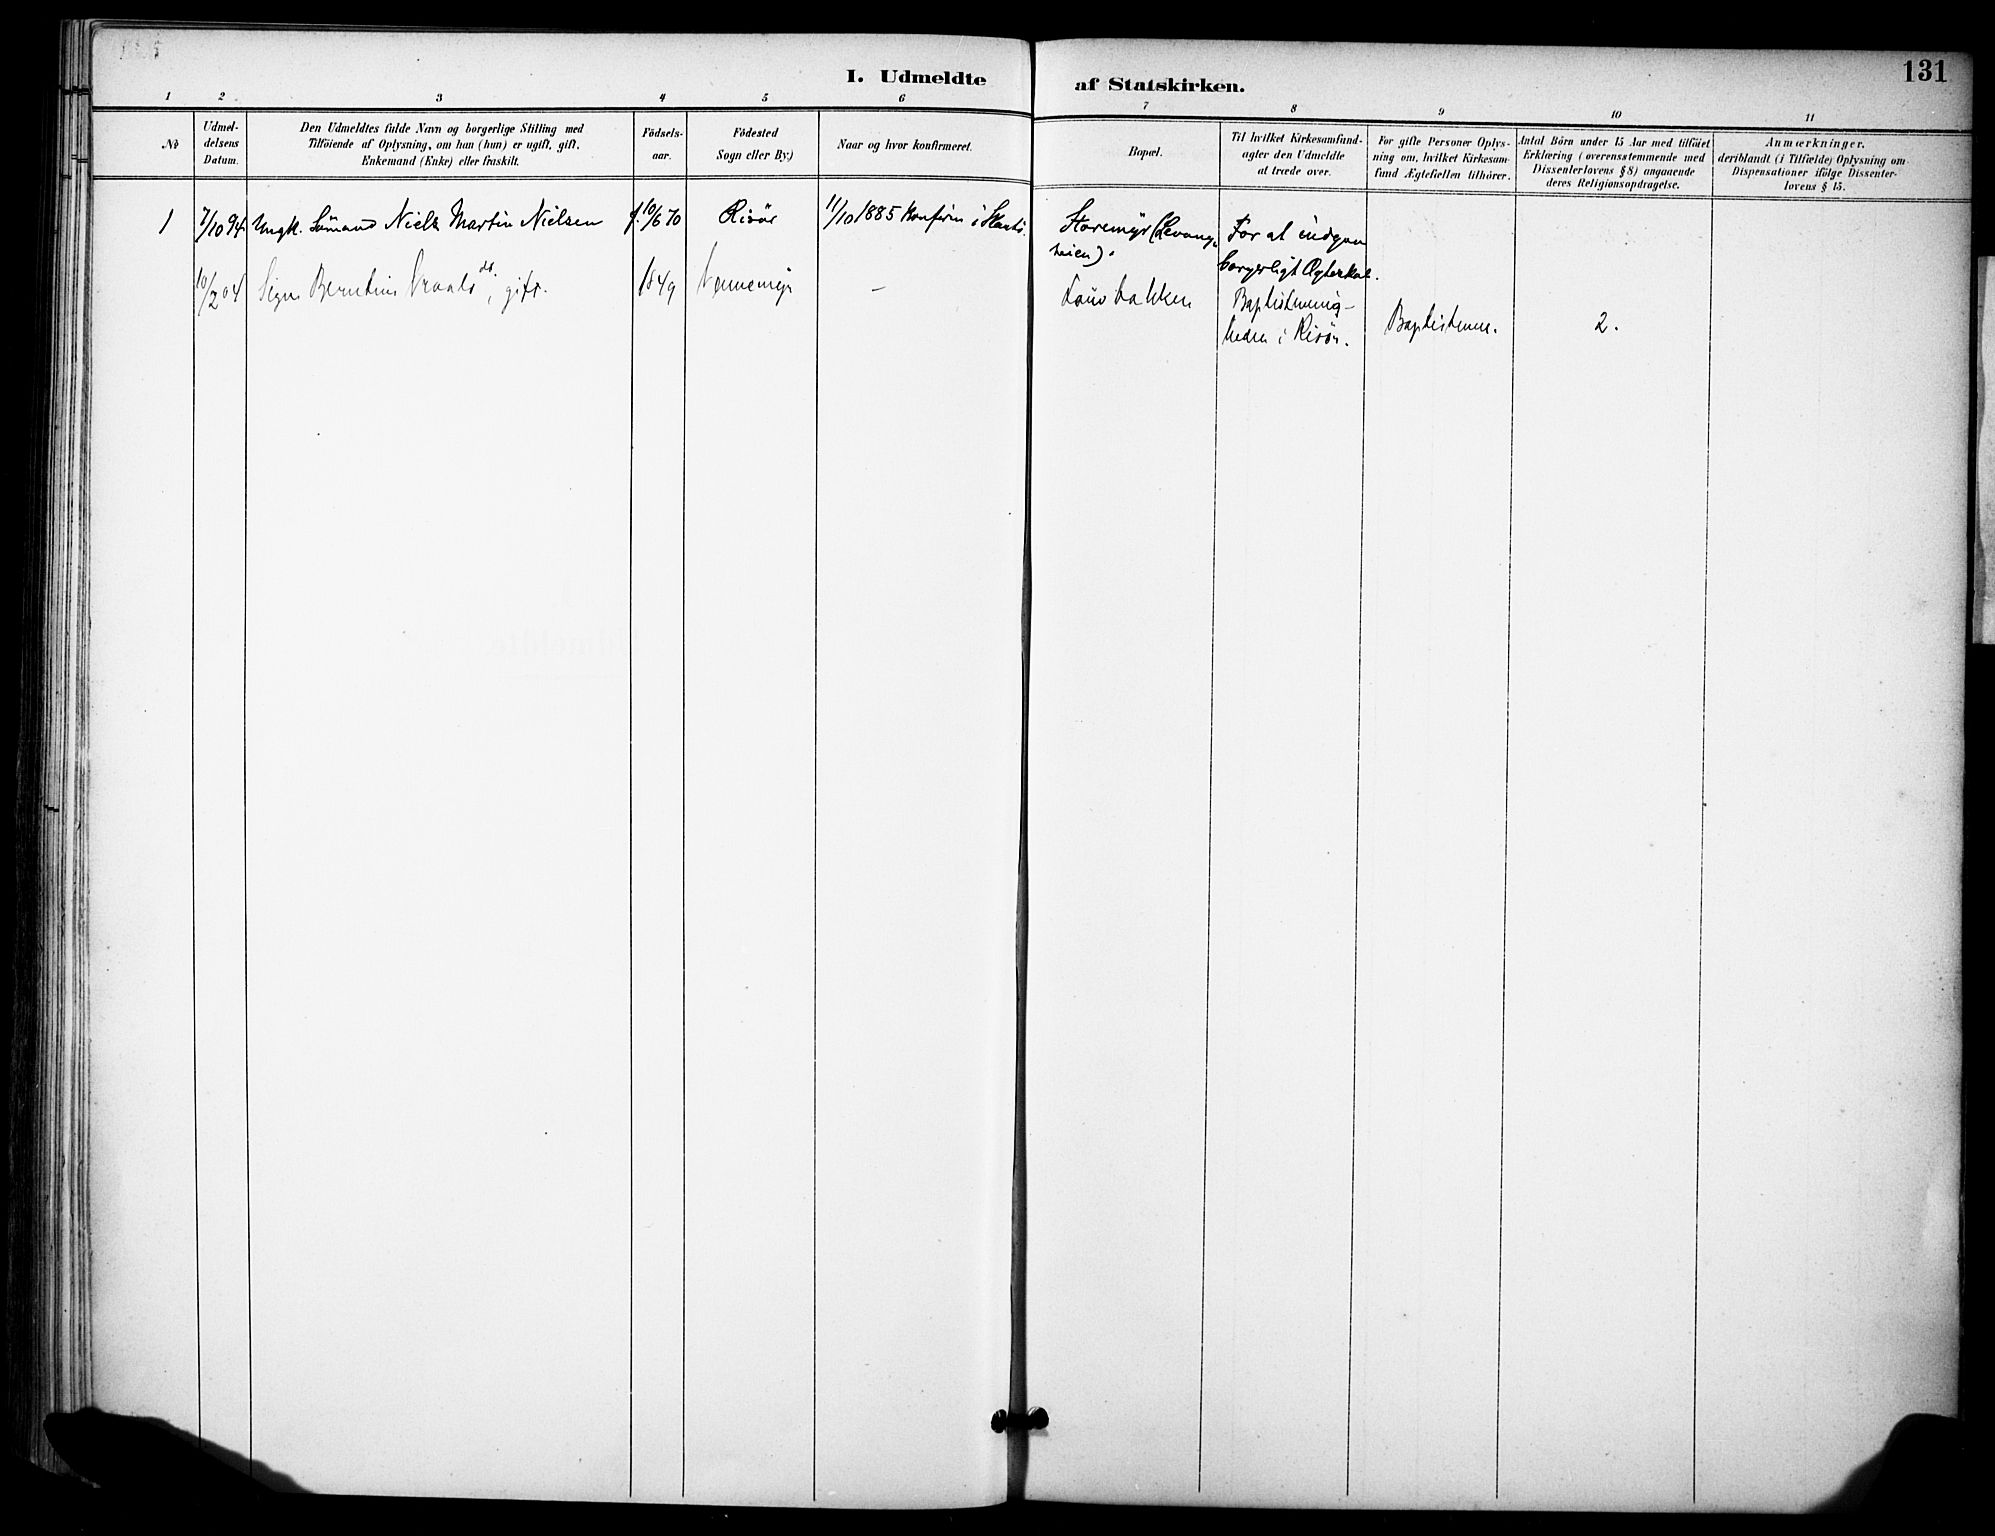 I. Udmeldte af Statskirken.
131
1 2 3 4 5 6 7 8 9 10 11
No
Udmel-
delsens
Datum.
Den Udmeldtes fulde Navn og borgerlige Stilling med
Tilföiende af Oplysning, om han (hun) er ugift, gift,
Enkemand (Enke) eller fraskilt.
Födsels-
aar.
Födested
Sogn eller By.)
Naar og hvor konfirmeret.
Bopæl.
Til hvilket Kirkesamfund
agter den Udmeldte
at træde over.
For gifte Personer Oplys-
ning om, hvilket Kirkesam-
fund Ægtefællen tilhörer.
Antal Börn under 15 Aar med tilföiet
Erklæring (overensstemmende med
Dissenterlovens § 8) angaaende
deres Religionsopdragelse.
Anmærkninger.
deriblandt (i Tilfælde) Oplysning om
Dispensationer ifölge Dissenter-
lovens § 15.
1
7/10 94
Ungk. Sömand Niels Martin Nielsen
f. 10/6 70
Risör
11/10 1885 Konfirm i
Storemyr (Levang-
heien).
For at indgaa
borgerligt Ægteskab.
10/2 04
Signe gift.
1849
–
Baptistmenig-
heden i Risör.
Baptisterne.
2.